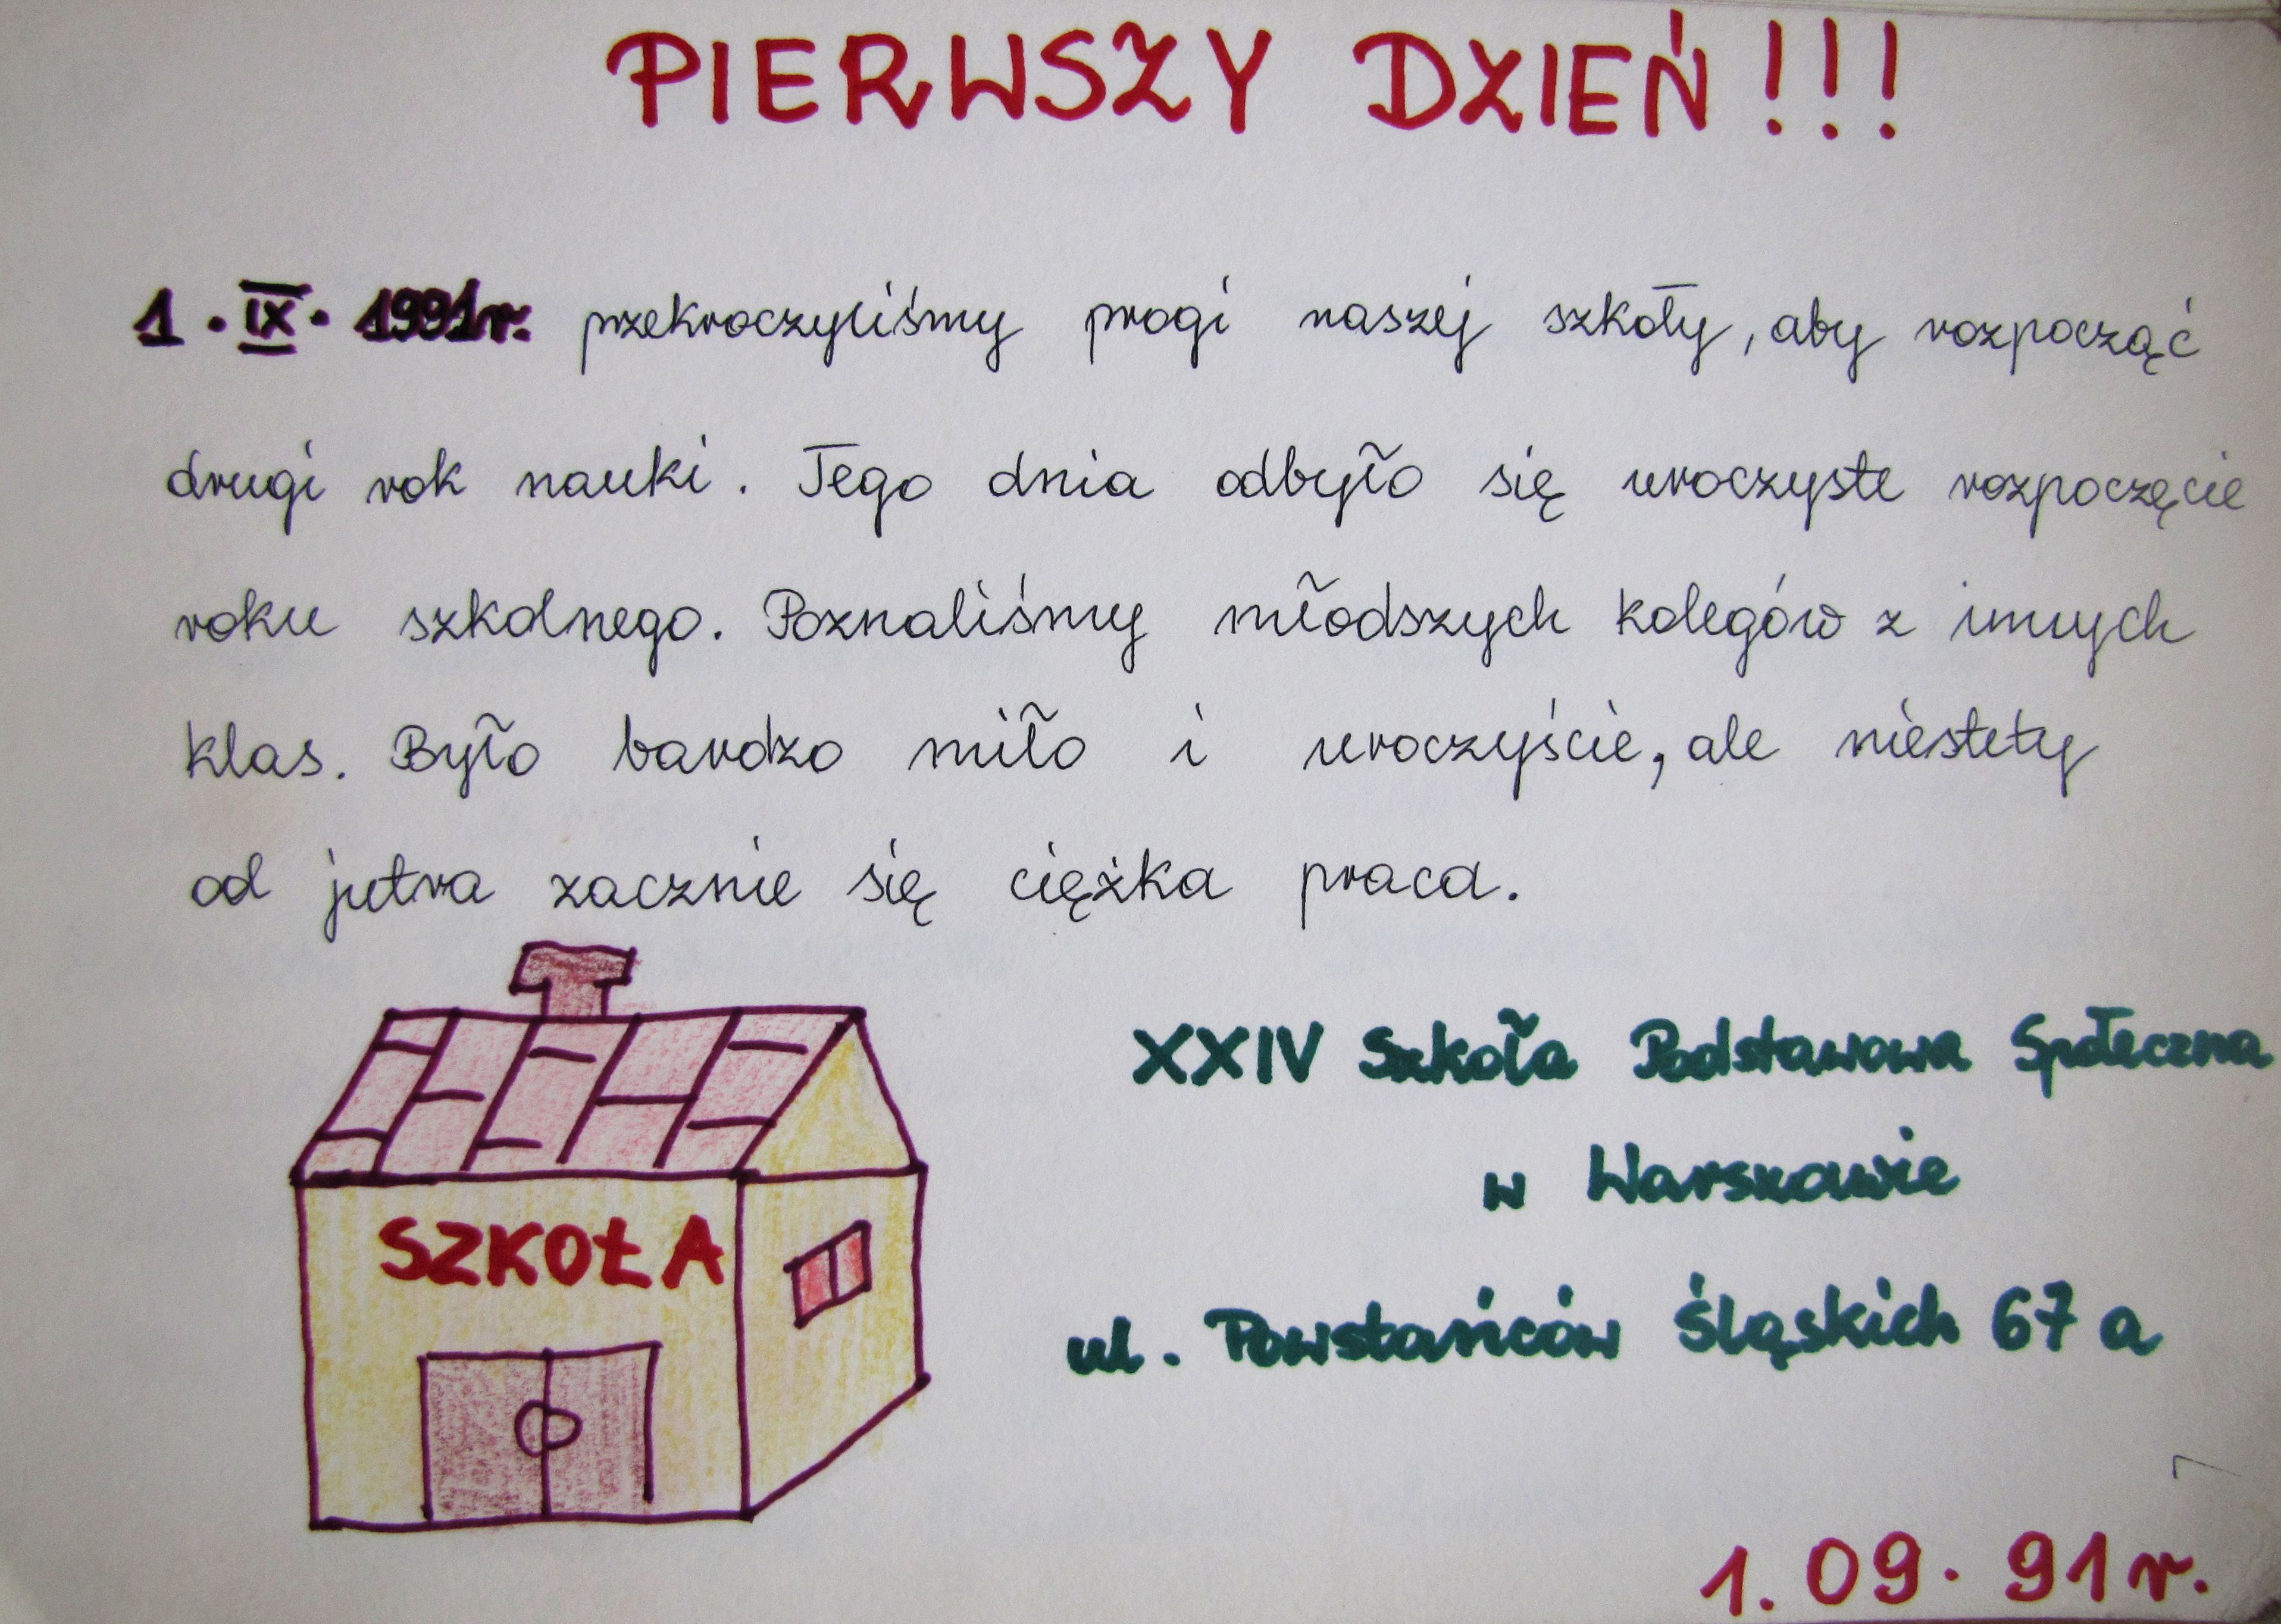 PIERWSZY DZIEŃ!!!
1. IX. 1991r. przekroczyliśmy progi naszej szkoły, aby rozpocząć
drugi rok nauki. Tego dnia odbyło się uroczyste rozpoczęcie
roku szkolnego. Poznaliśmy młodszych kolegów z innych
klas. Było bardzo miło i uroczyście, ale niestety
od jutra zacznie się ciężka praca.
XXIV Szkoła Podstawowa Społeczna
w Warszawie
ul. Powstańców Śląskich 67 a
SZKOŁA
1.09.91r.